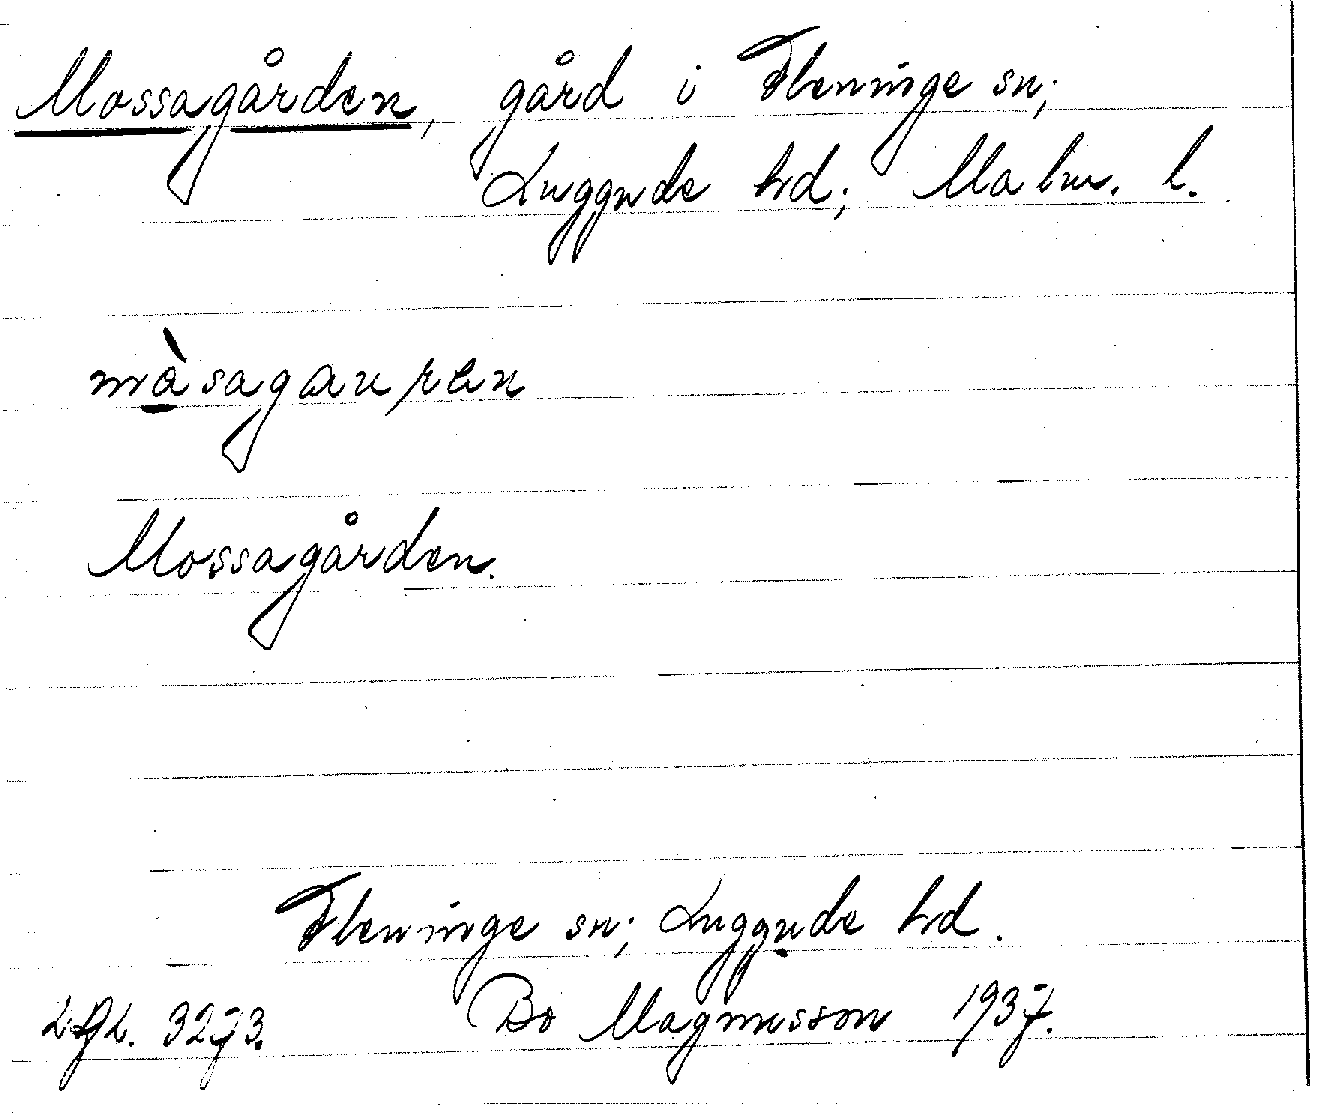 Mossagården, gård i Fleninge sn;
Luggude hd; Malm. l.
måsagauren
Mossagården.
Fleninge sn; Luggude hd.
Bo Magnusson 1937.